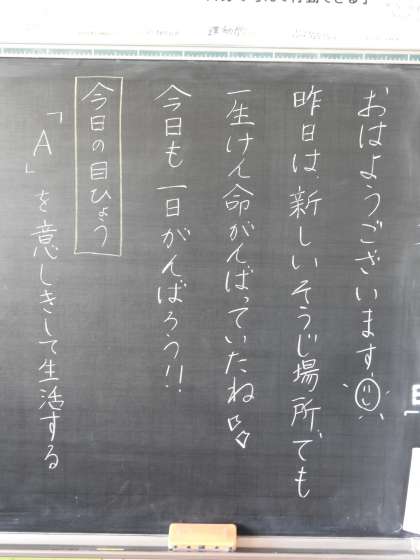 おはようございます。
昨日は、新しいそうじ場所でも
一生けん命がんばっていたね
今日も一日がんばろう!!
今日の目ひょう
「A」を意しきして生活する